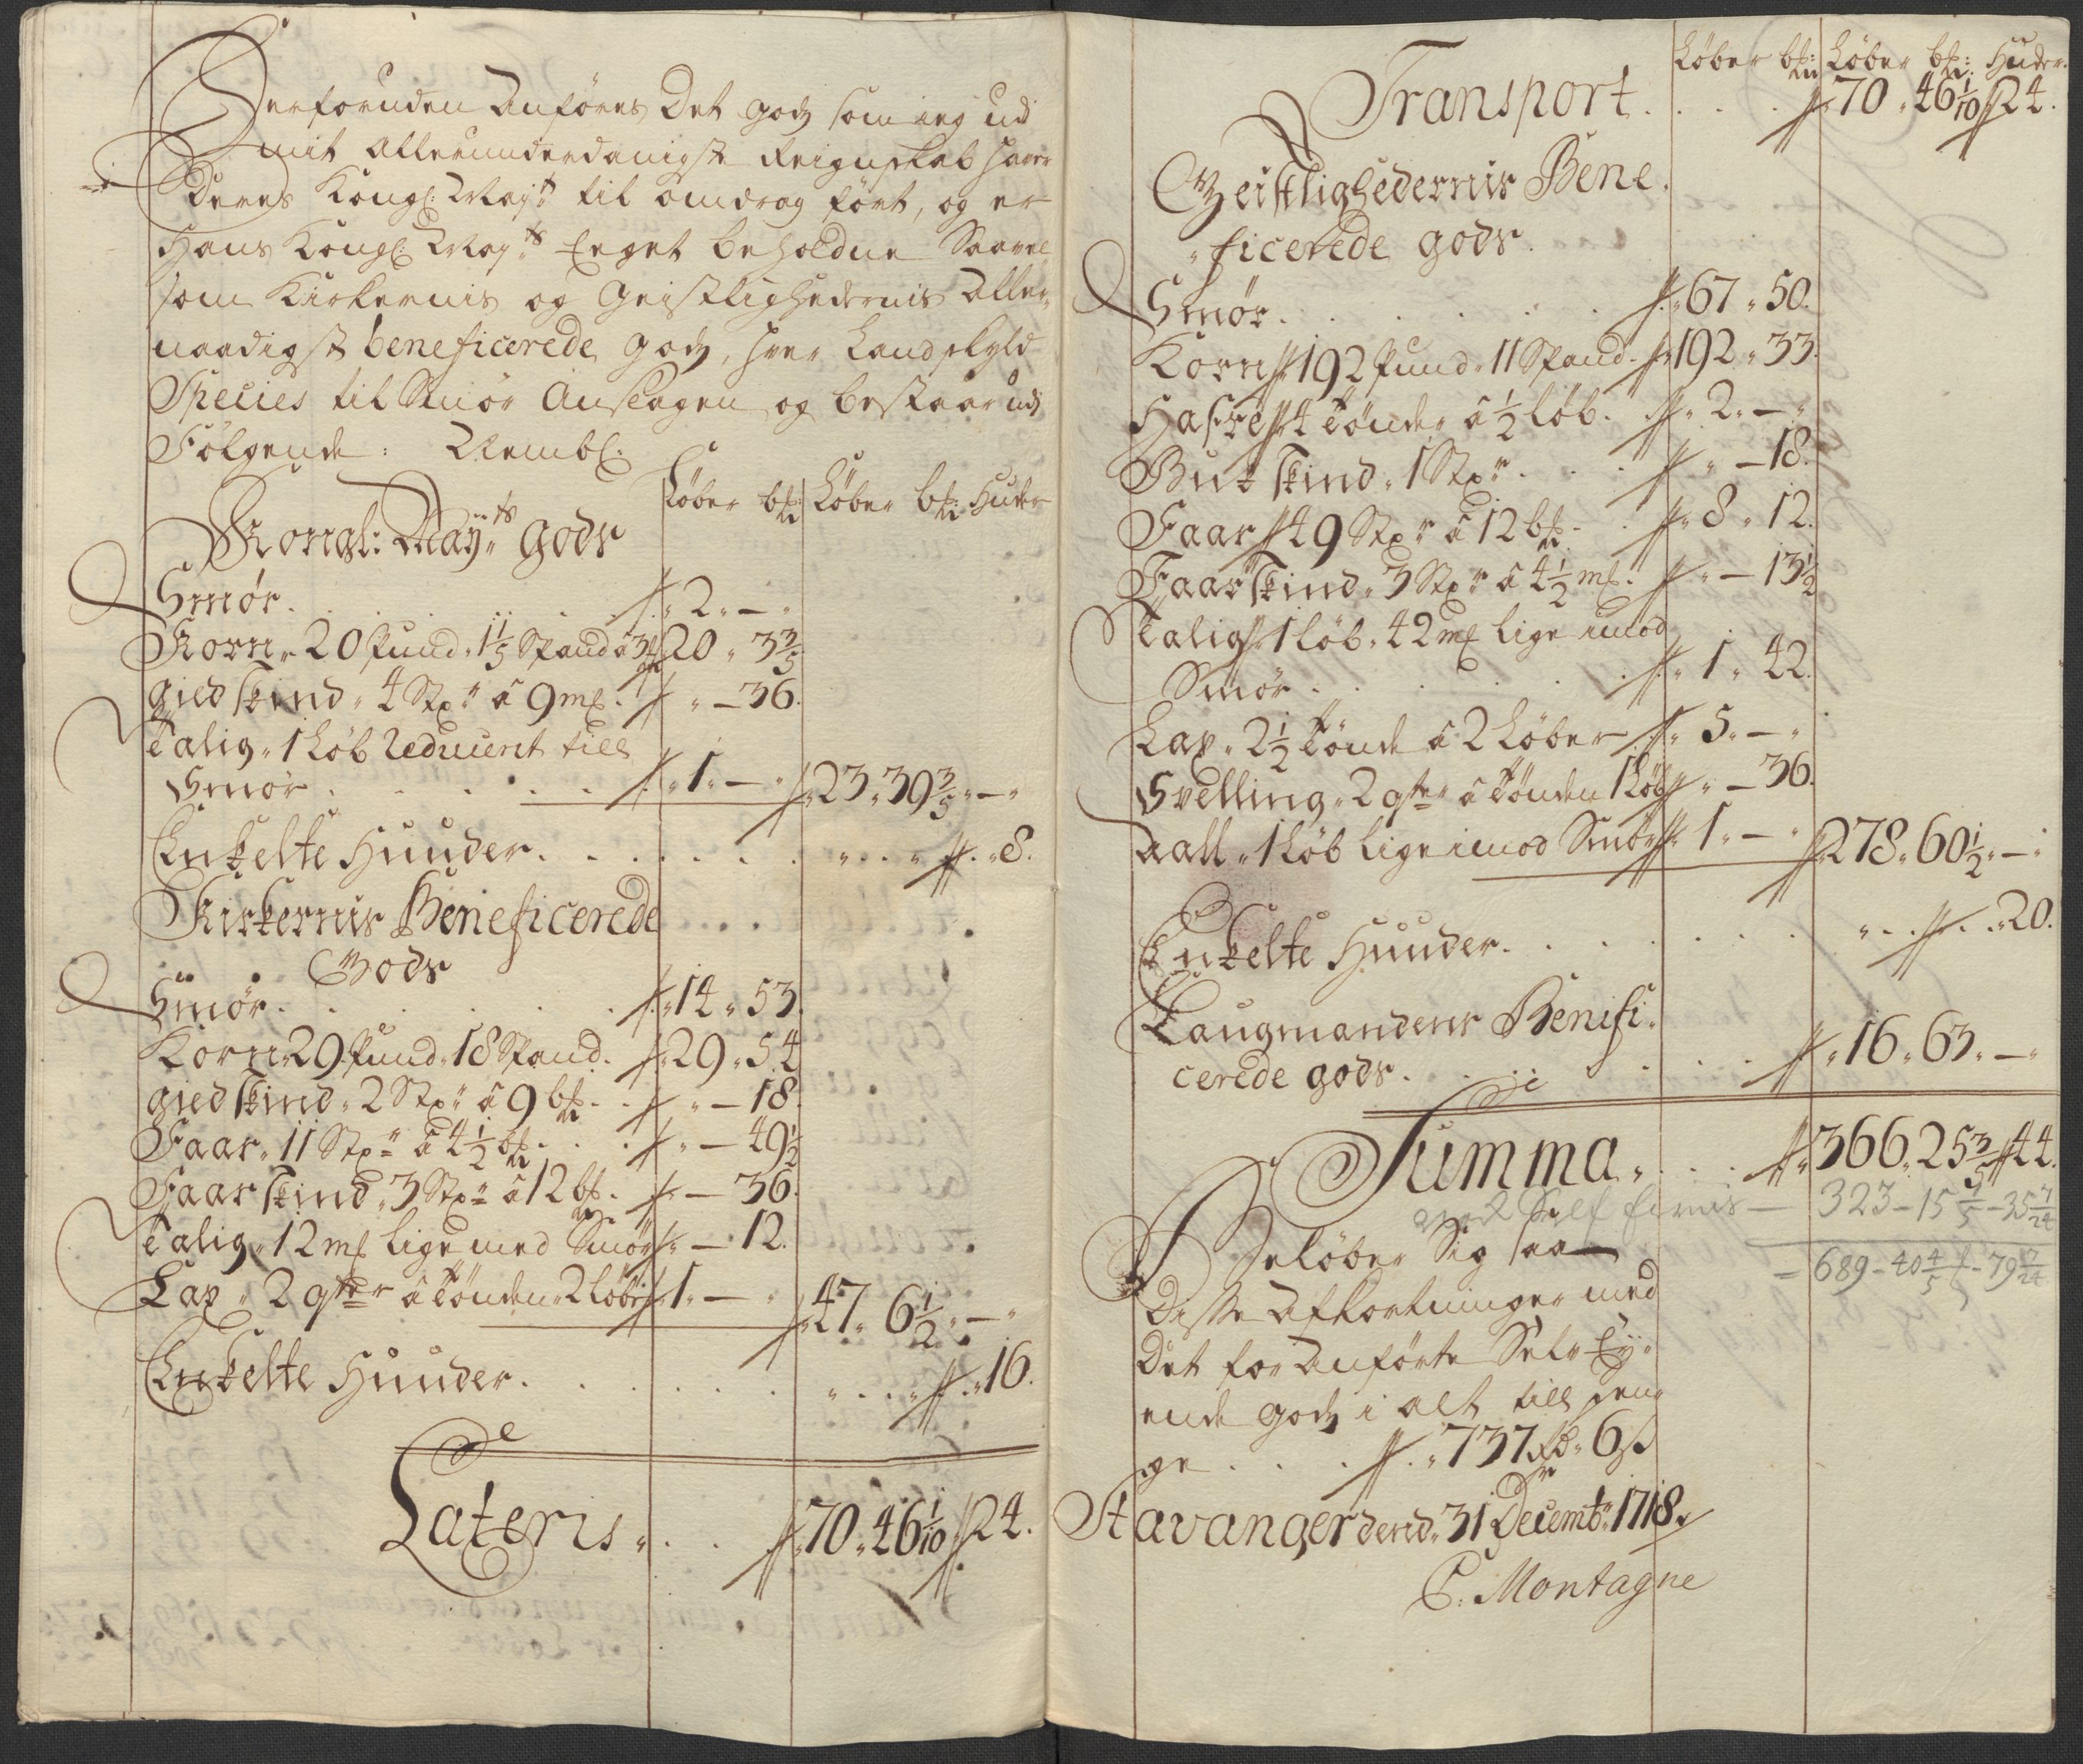 Derforuden Anføres Det godz som ieg udi
mit allerunderdanigste Reignskab haver
Deres Kongl: Mayts til omdrag ført, og er
Hans Kongl: Mayts Eeget beholdne Saavel
som Kirkernis og Geistlighedernis Aller¬
naadigst beneficerede godz, hver Landskyld
Species til Smör Anslagen og bestaar udj
Følgende: Nembl.
Løber bp: Løber bp: Huder
Kongl: Mayts gods
Smør . . . 2 " — "
Korn " 20 Pund " 1 1/5 Spand à 3 bp 20 " 3 3/5
giedskind " 4 Stpr à 9 ml. " — 36.
Talig " 1 Løb Reduceret till
Smør . . . 1 " — " 23 " 39 3/5 " — "
Enkelte Huuder . . . 8.
Kirkernis Beneficerede
Gods
Smør . . . 14 " 53.
Korn " 29 Pund " 18 Spand . 29 " 54
giedskind " 2 Stpr à 9 bp . . " — 18.
Faar " 11 Stpr à 4 1/2 bp . . . " — 49 1/2
Faarskind " 3 Stpr à 12 bp . " — 36.
Talig " 12 ml lige med Smør " — 12.
Lax " 2 qter à Tønden 2 Løber 1 " — " 47 " 6 1/2 " — "
Enkelte Huuder . . . 16.
Lateris " . . . 70 " 46 1/10 24.
Løber bp: Løber bp: Huder.
Transport . . . 70 " 46 1/10 24.
Geistlighedernis Bene
ficerede gods.
Smør . . . 67 " 50.
Korn 192 Pund " 11 Spand . 192 " 33.
Hafre 4 Tønder à 1/2 løb . 2 " — "
Bukskind " 1 Stpr . . . " — 18.
Faar 49 Stpr à 12 bp . 8 " 12.
Faarskind " 3 Stpr à 4 1/2 ml . " — 13 1/2
Talig 1 løb " 42 ml lige imod
Smør . . . 1 " 42.
Lax " 2 1/2 Tønde à 2 Løber 5 " — "
Svelling " 2 qter à Tønden 1 Løb " — 36.
Aall " 1 Løb lige imod Smør 1 " — " 278 " 60 1/2 " — "
Enkelte Huuder . . . 20.
Laugmandens Benifi¬
cerede gods . . . 16 " 63 " — "
Summa " . . . 366 " 25 3/5 44.
323 - 15 1/5 - 35 7/24
= 689 - 40 4/5 - 79 7/24
Beløber Sig saa
Disse Afkortninger med
Det for Anførte Selv Ey¬
ende godz i alt till pen¬
ge . . . 737 rd " 6 ß
Stavanger dend " 31 Decembr 1718.
C. Montagne